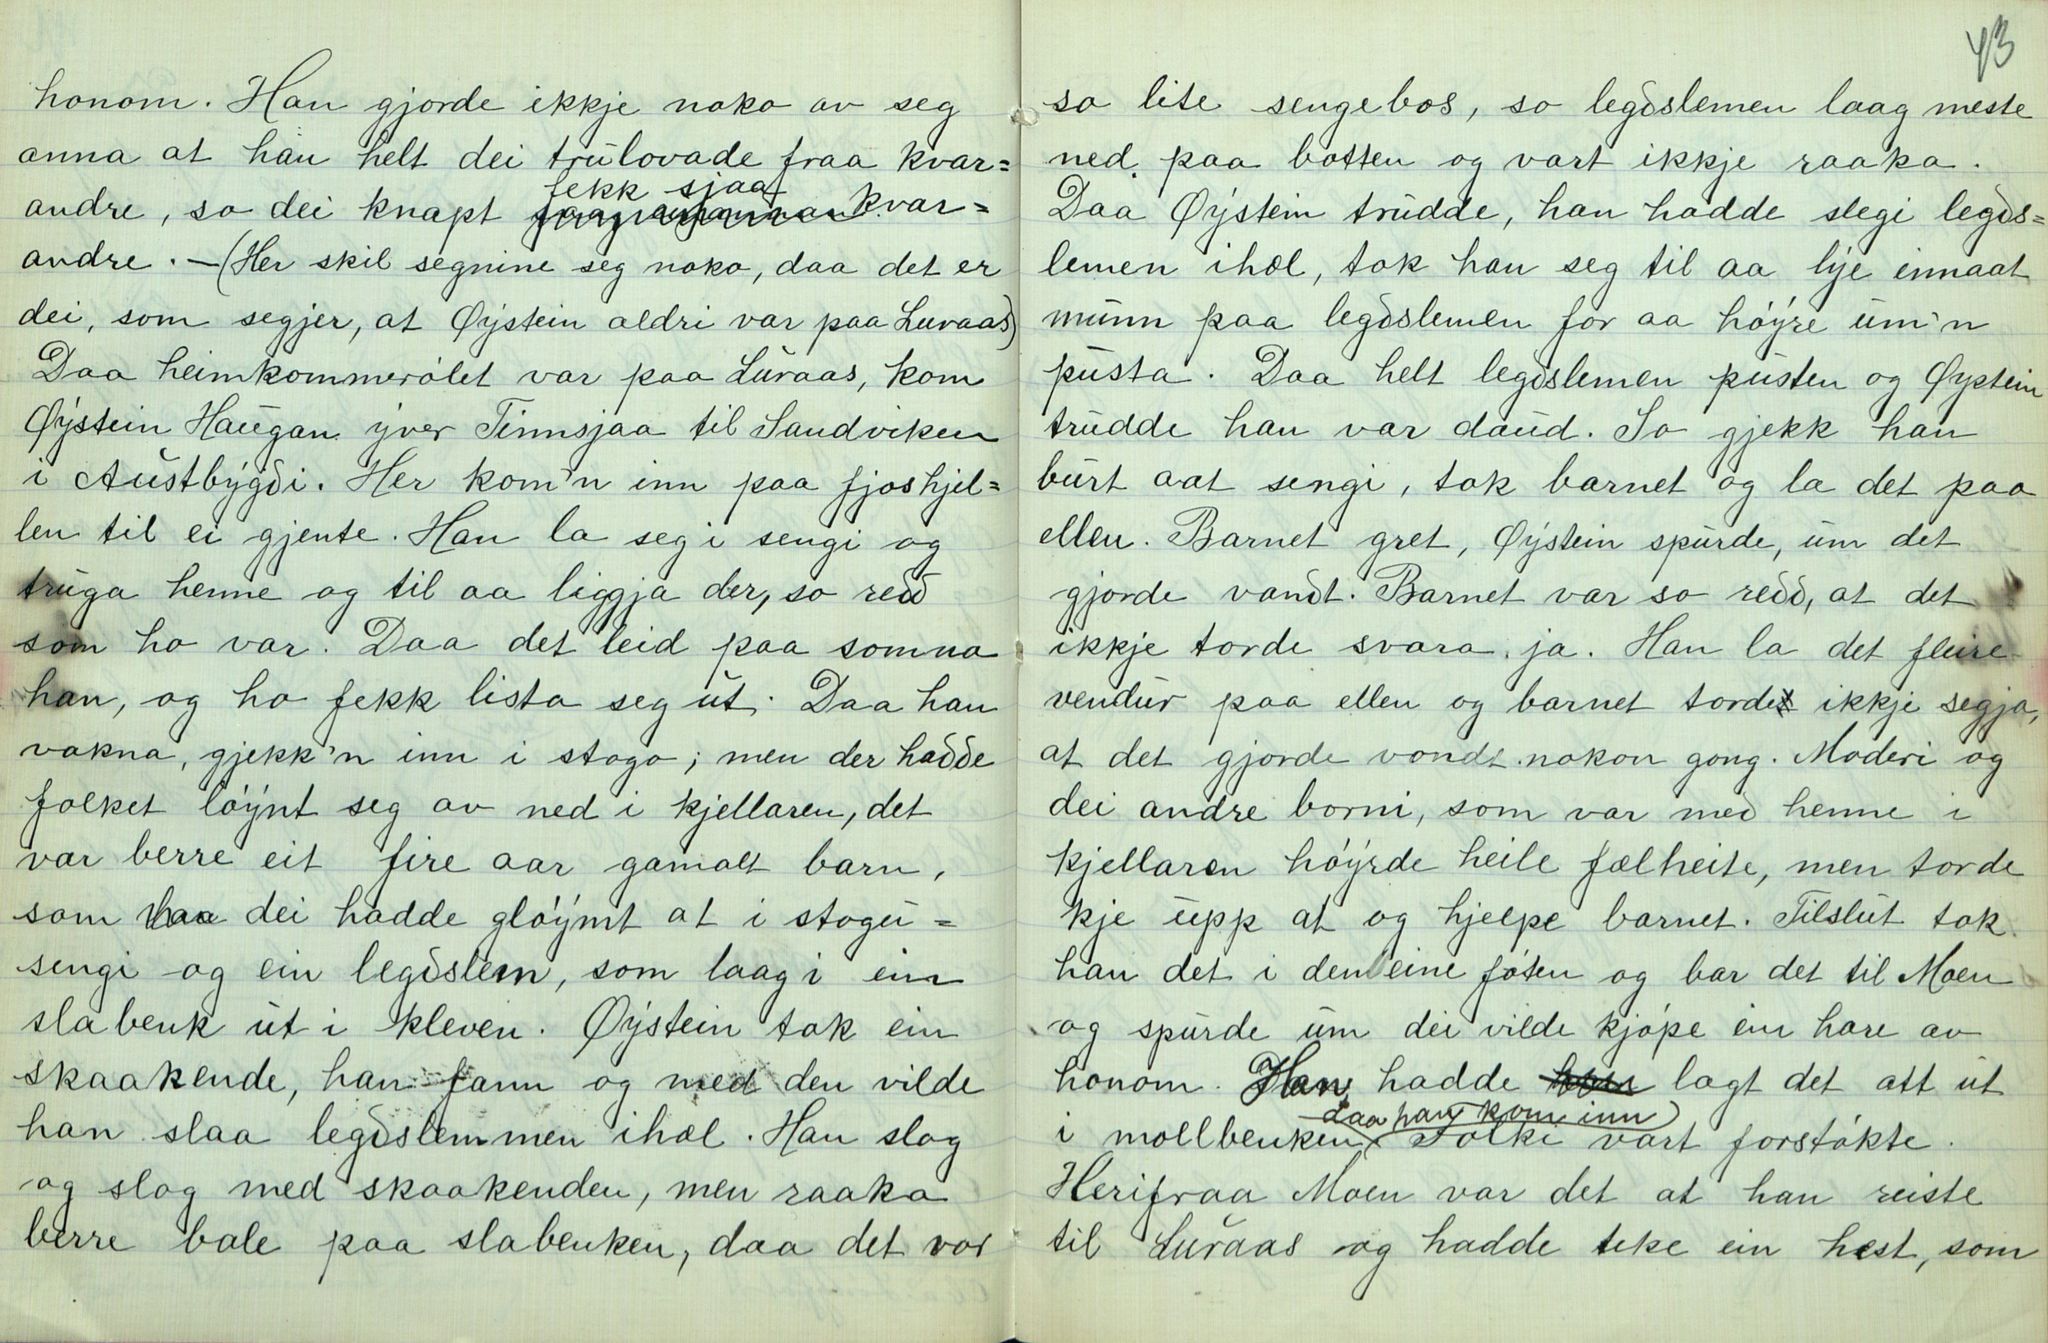 honom. Han gjorde ikkje noko av seg
anna at han helt dei trulovade fraa kvar=
fekk sjaa
andre, so dei knapt kvar=
andre. — (Her skil segnine seg noko, daa det er
dei, som segjer, at Øystein aldri var paa Luraas)
Daa heimkommerølet var paa Luraas, kom
Øystein Haugan yver Tinnsjaa til Sandviken
i Austbygdi. Her kom'n inn paa fjoshjel=
len til ei gjente. Han la seg i sengi og
truga henne og til aa liggja der, so redd
som ho var. Daa det leid paa somna
han, og ho fekk lista seg ut. Daa han
vakna, gjekk'n inn i stogo; men der hadde
folket løynt seg av ned i kjellaren, det
var berre eit fire aar gamalt barn,
som dei hadde gløymt at i stogu=
sengi og ein legdslem, som laag i ein
slabenk ut i kleven. Øystein tok ein
skaakende, han fann og med den vilde
han slaa legdslemmen ihæl. Han slog
og slog med skaakenden, men raaka
berre bale paa slabenken, daa det var
43
so lite sengebos, so legdslemen laag meste
ned paa botten og vart ikkje raaka.
Daa Øystein trudde, han hadde slegi legds=
lemen ihæl, tok han seg til aa lye innaat
munn paa legdslemen for aa høyre um'n
pusta. Daa helt legdslemen pusten og Øystein
trudde han var daud. So gjekk han
burt aat sengi, tok barnet og la det paa
ellen. Barnet gret, Øystein spurde, um det
gjorde vondt. Barnet var so redd, at det
ikkje torde svara ja. Han la det fleire
vendur paa ellen og barnet torde ikkje segja,
at det gjorde vondt nokon gong. Moderi og
dei andre borni, som var med henne i
kjellaren høyrde heile fælheite, men torde
kje upp at og hjelpe barnet. Tilslut tok
han det i den eine foten og bar det til Moen
og spurde um dei vilde kjøpe ein hare av
honom. Han hadde lagt det att ut
daa han kom inn
i mollbenken Folki vart forstøkte.
Herifraa Moen var det at han reiste
til Luraas og hadde teke ein hest, som